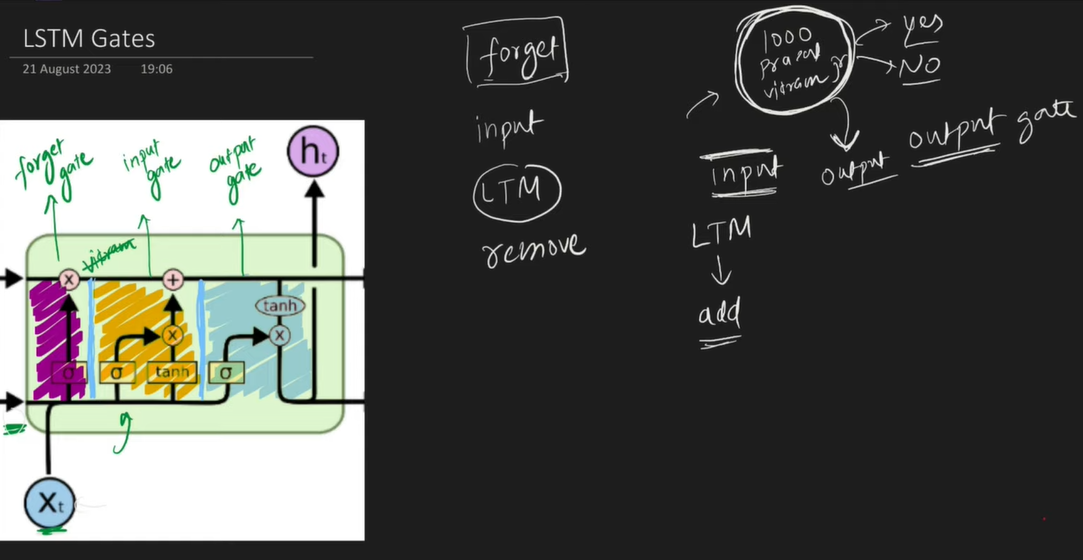 LSTM Gates
21 August 2023 19:06
forget
gate
input
gate
output
gate
ht
vikram
x
+
tanh
x
x
σ
σ
tanh
σ
Xt
forget
input
LTM
remove
1000
vikram jr
yes
NO
input
LTM
add
output
output gate